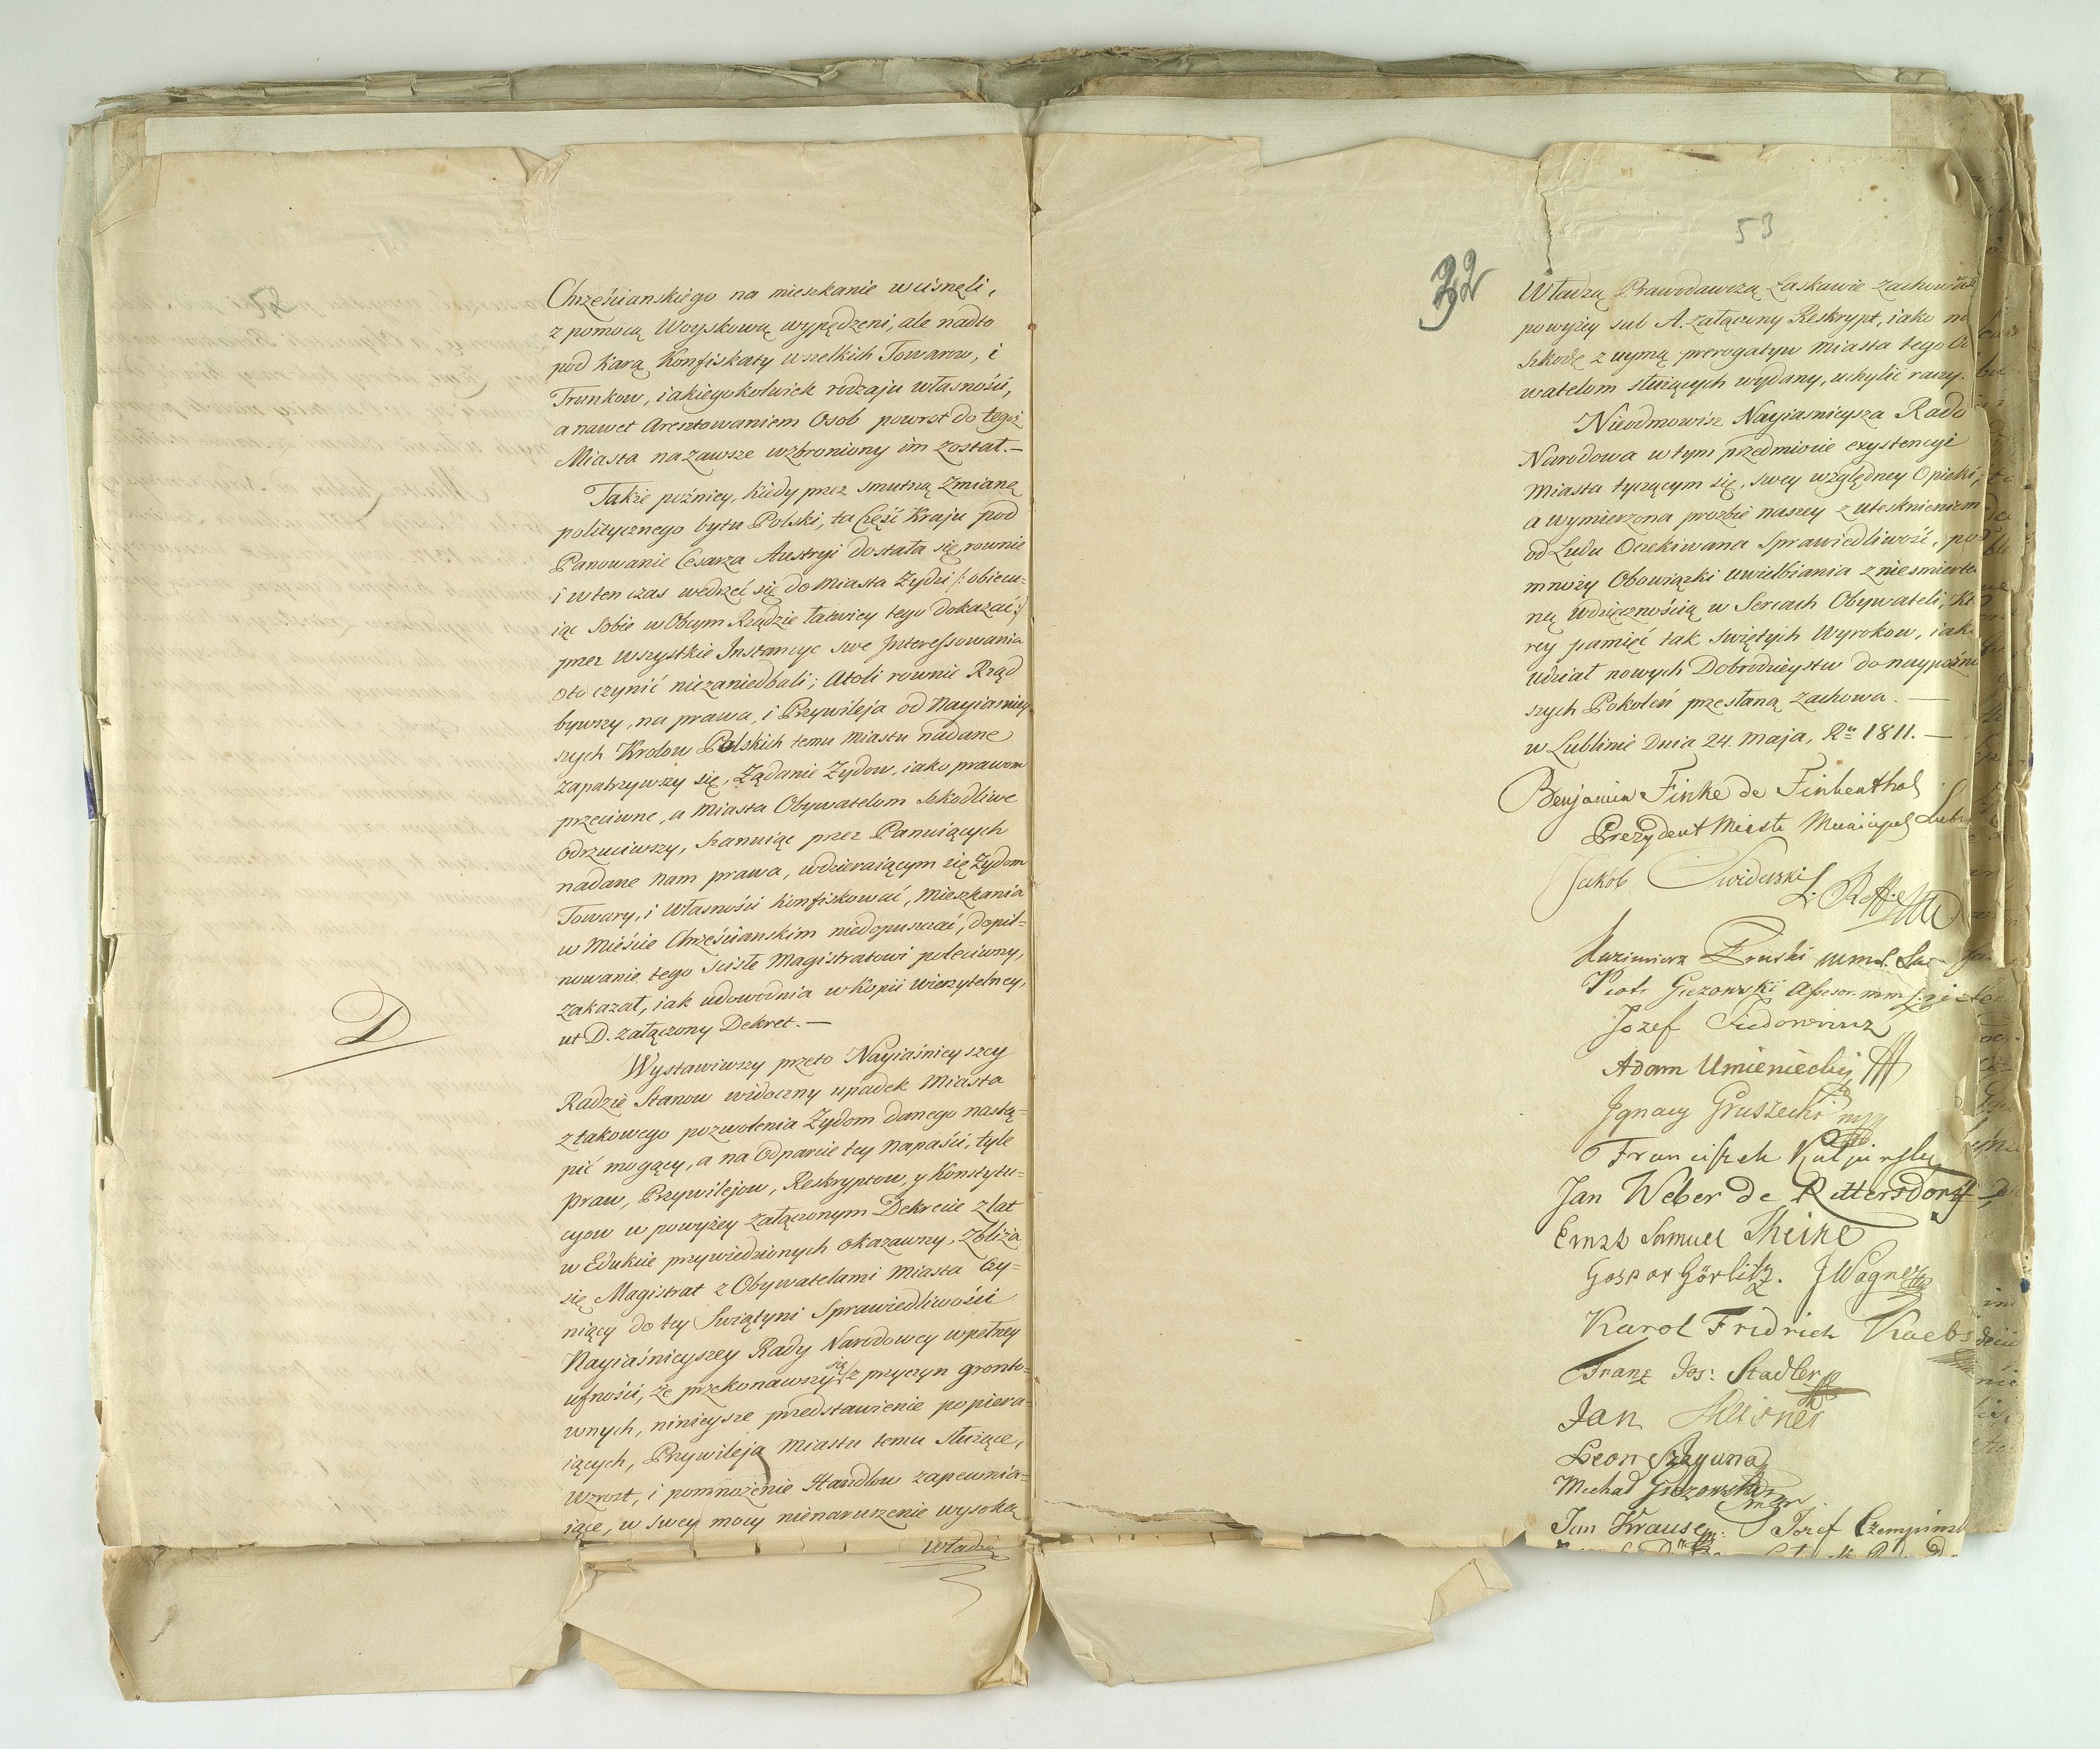 52
Chrześcianskiego na mieszkanie wcisnęli,
z pomocą Woyskową wypędzeni, ale nadto
pod karą Konfiskaty wszelkich Towarow, i
Trunkow, iakiegokolwiek rodzaju własności,
a nawet Aresztowaniem Osob powrot do tegoż
Miasta nazawsze wzbroniony im został.—
Także poźniey, kiedy przez smutną Zmianę
politycznego bytu Polski, ta Część Kraju pod
Panowanie Cesarza Austryi dostała się, rownie
i w ten czas wedrzeć się do Miasta Żydzi /: obiecu=
iąc sobie w Obcym Rządzie łatwiey tego dokazać :/
przez wszystkie Instancye swe Interessowania
oto czynić niezaniedbali; Atoli rownie Rząd
bywszy, na prawa, i Przywileja od Nayiaśniey
szych Krolow Polskich temu Miastu nadane
zapatrzywszy się, Żądanie Żydow, iako prawom
przeciwne, a Miasta Obywatelom szkodliwe
Odrzuciwszy, szanuiąc przez Panuiących
nadane nam prawa, wdzieraiącym się Żydom
Towary, i własności konfiskować, Mieszkania
w Mieście Chrześcianskim niedopuszczać, dopil=
nowanie tego sciśle Magistratowi poleciwszy,
zakazał, iak udowodnia w Kopii wierzytelney,
ut D. załączony Dekret.—
D
Wystawiwszy przeto Nayiaśnieyszey
Radzie Stanow widoczny upadek Miasta
z takowego pozwolenia Żydom danego nastą=
pić mogący, a na Odparcie tey napaści, tyle
Praw, Przywilejow, Reskryptow, y Konstytu=
cyow w powyżey załączonym Dekrecie z lat
w Edukcie przywiedzionych okazawszy, Zbliża
się Magistrat z Obywatelami Miasta Czy=
niący do tey Swiątyni Sprawiedliwości
Nayiaśnieyszey Rady Narodowey w pełney
ufności, że przekonawszy się z przyczyn grunto=
wnych, ninieysze przedstawienie popiera=
iących, Przywileja Miastu temu służące,
Wzrost, i pomnożenie Handlow zapewnia=
iące, w swey mocy nienaruszenie wysoką
Władzą
32
53
Władzą Prawodawczą Łaskawie zachować
powyżey sub A. załączony Reskrypt, iako na
Szkodę z uymą prerogatyw Miasta tego Ob
watelom służących wydany, uchylić raczy.
Nieodmowisz Nayiaśnieysza Rado
Narodowa w tym przedmiocie exystencyi
Miasta tyczącym się, swey względney Opieki,
a wymierzona prozbie naszey z utesknieniem
od Ludu Oczekiwana Sprawiedliwość, po
mnoży Obowiązki uwielbiania z niesmierte
ną wdzięcznością w Sercach Obywateli, Kt
rey pamięć tak Swiętych Wyrokow, iak
udział nowych Dobrodzieystw do naypoźni
szych Pokoleń przesłaną zachowa.—
w Lublinie Dnia 24. Maja, Ru 1811.—
Benjamin Finke de Finkenthal
Prezydent Miasta Municypal Lub
Jakob Swiderski
Kazimierz
Piotr Giezowski Assesor
Jozef Fiedorowicz
Adam Umieniecki
Ignacy Gruszecki mp
Franciszek
Jan Weber de Rittersdorff
Ernst Samuel Theine
Gaspar Görlitz. J Wagner
Karol Fridrich
Franz Jos: Stadler
Jan Meisner
Leon
Michał Giezowski
Jan Krause Jozef Czempinski